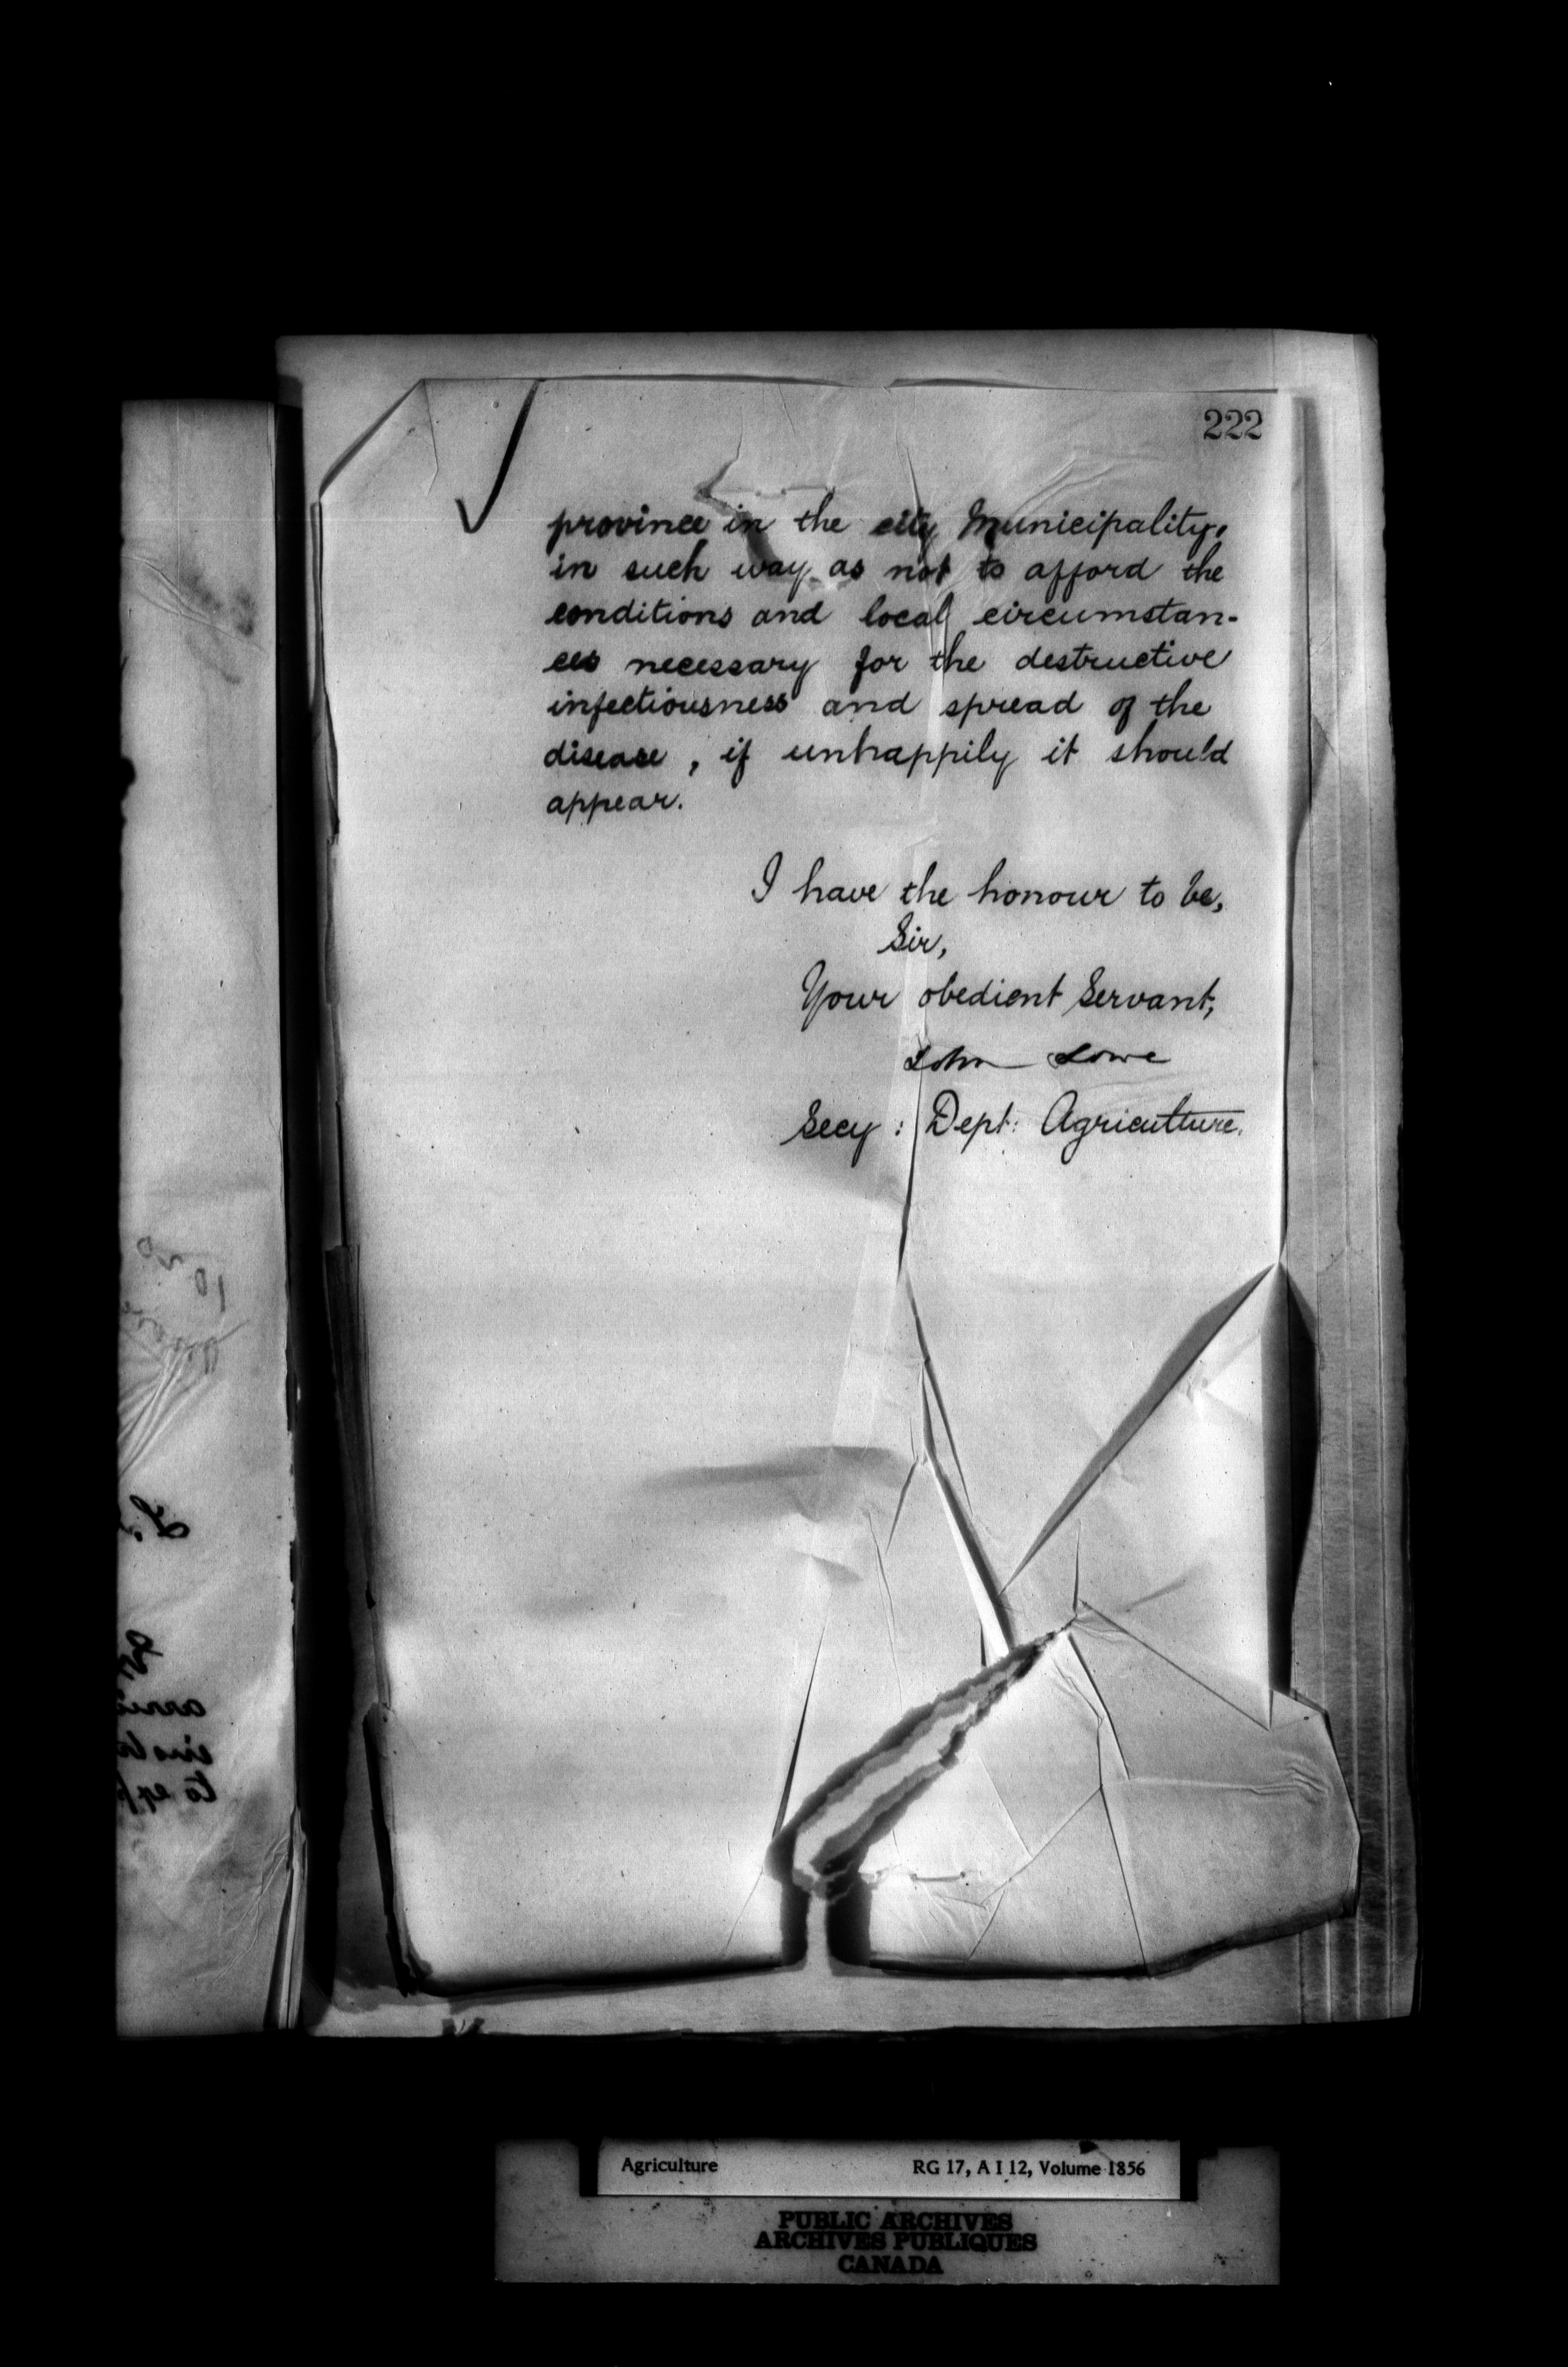 222
province in the city Municipality,
in such way as not to afford the
conditions and local circumstan-
ces necessary for the destructive
infectiousness and spread of the
disease, if unhappily it should
appear.
I have the honour to be,
Sir,
Your obedient Servant,
John Lowe
Secy: Dept: Agriculture.
Agriculture RG 17, A I 12, Volume 1856
PUBLIC ARCHIVES
ARCHIVES PUBLIQUES
CANADA